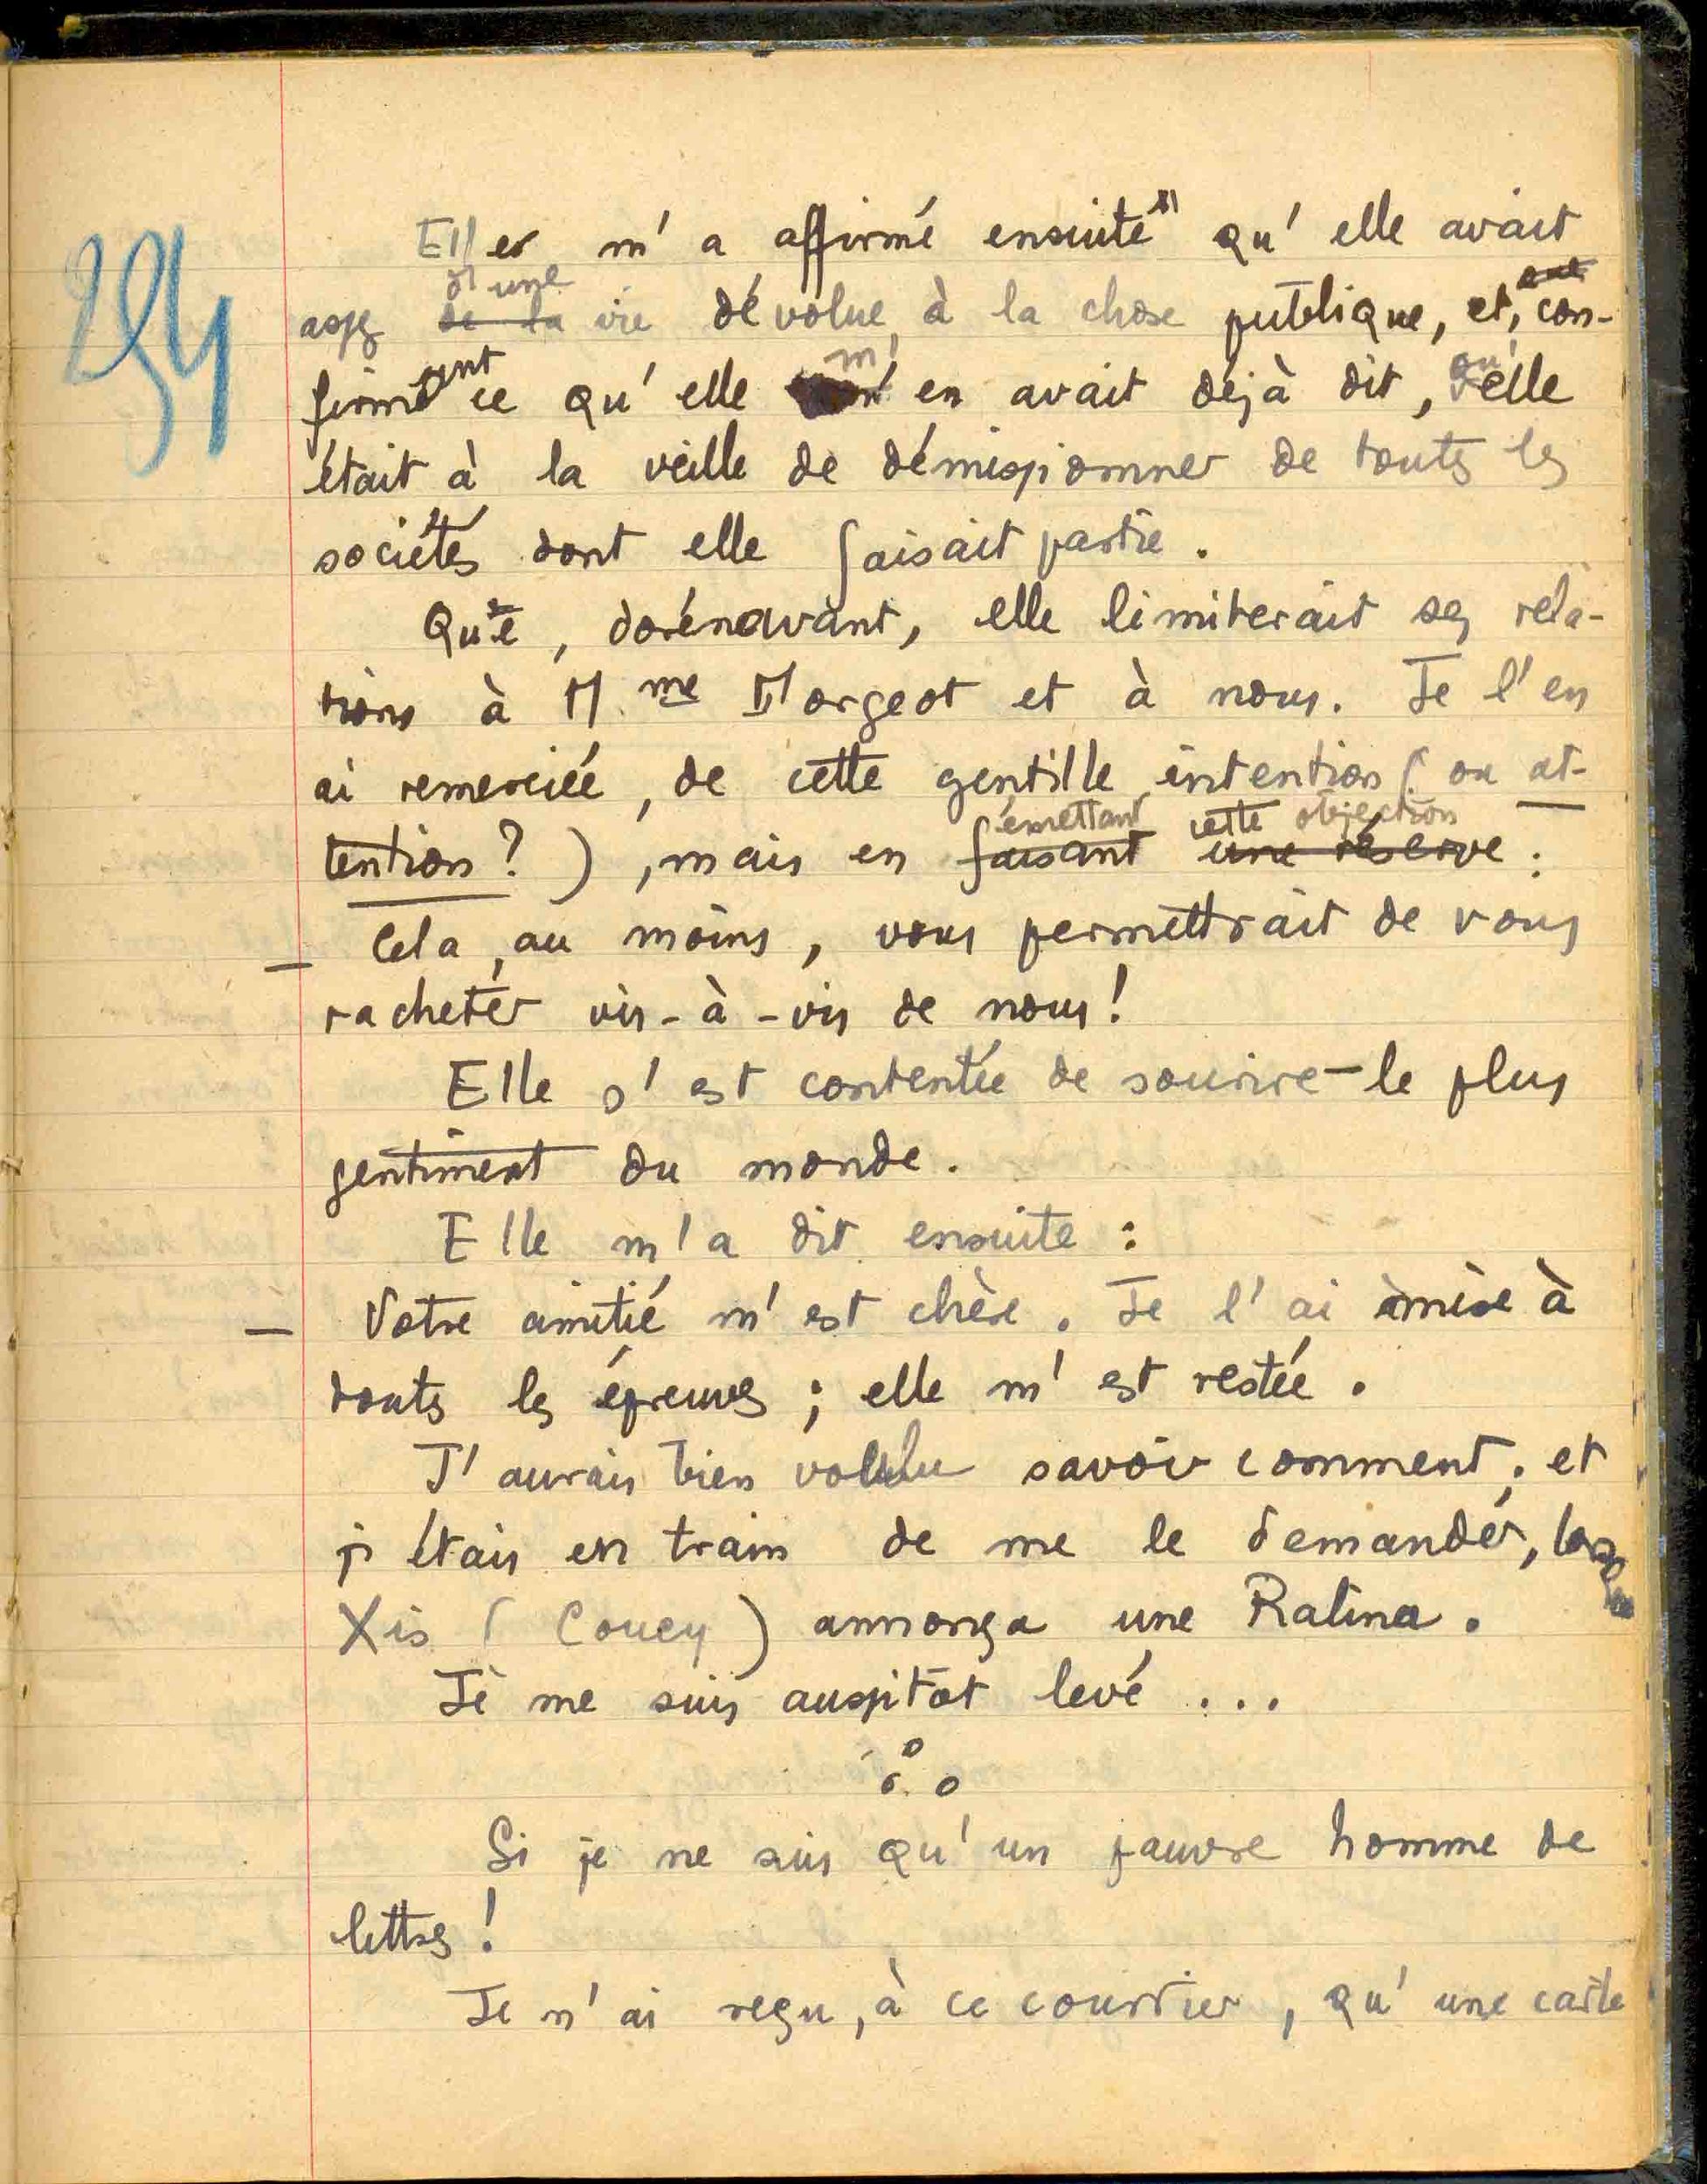 294
Elle m'a affirmé ensuite qu'elle avait
assez d'une de la vie dévolue à la chose publique, et, que con-
firmant ce qu'elle m'en avait déjà dit, qu'elle
était à la veille de démissionner de toutes les
sociétés dont elle faisait partie.
Que, dorénavant, elle limiterait ses rela-
tions à Mme Morgeot et à nous. Je l'en
ai remerciée, de cette gentille intention (ou at-
tention ?), mais en émettant cette objection
faisant une réserve :
— Cela, au moins, vous permettrait de vous
racheter vis-à-vis de nous !
Elle s'est contentée de sourire – le plus
gentiment du monde.
Elle m'a dit ensuite :
— Votre amitié m'est chère. Je l'ai mise à
toutes les épreuves ; elle m'est restée.
J'aurais bien voulu savoir comment, et
j'étais en train de me le demander, lorsque
Xis (Coucy) annonça une Ratina.
Je me suis aussitôt levé ...
o
o o
Si je ne suis qu'un pauvre homme de
lettres !
Je n'ai reçu, à ce courrier, qu'une carte